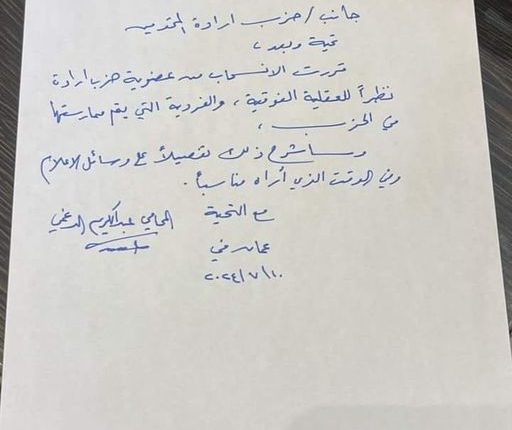 جانب / حزب ارادة المحترمين
تحية وبعد ،
قررت الانسحاب من عضوية حزب ارادة
نظراً للعقلية الفوقية ، والفردية التي يتم ممارستها
في الحزب ،
وسأشرح ذلك تفصيلاً على وسائل الاعلام
وفي الوقت الذي أراه مناسباً .
مع التحية
المحامي عبدالكريم الدغمي
عمان في
٢٠٢٤/٧/١٠